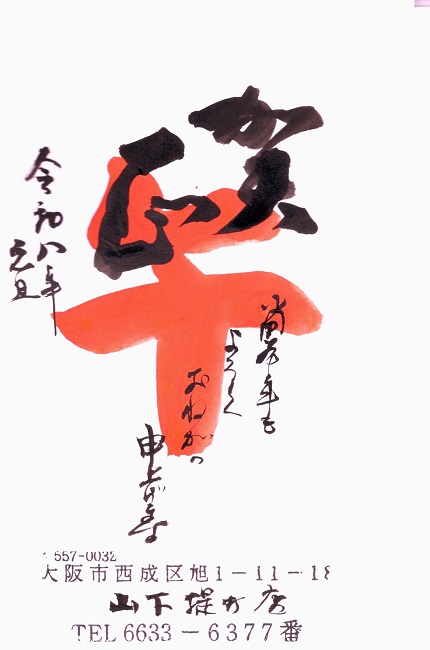 賀正
午
本年も
よろしく
おねがい
申上げます
令和八年
元旦
557-0032
大阪市西成区旭1-11-18
山下提灯店
TEL 6633-6377番